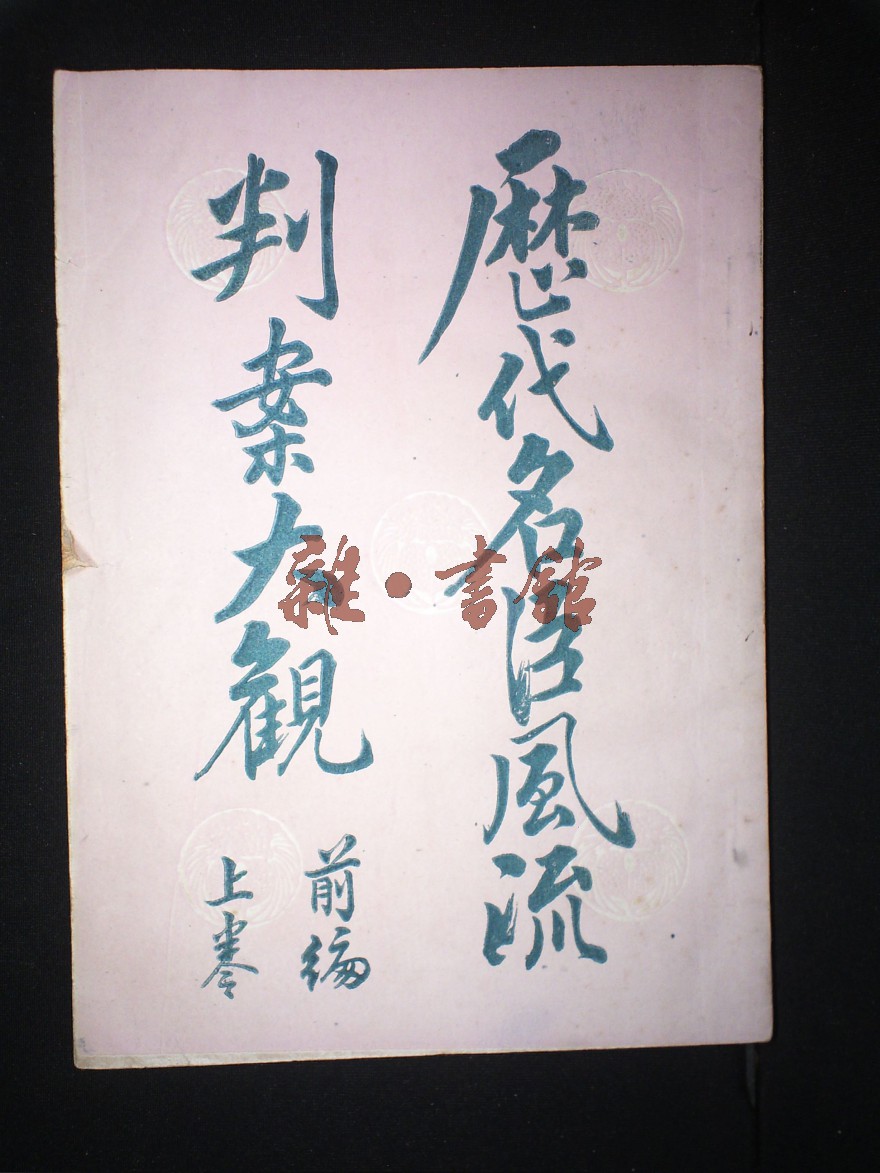 歷代名臣風流
判案大觀
前編
上卷
雜·書館